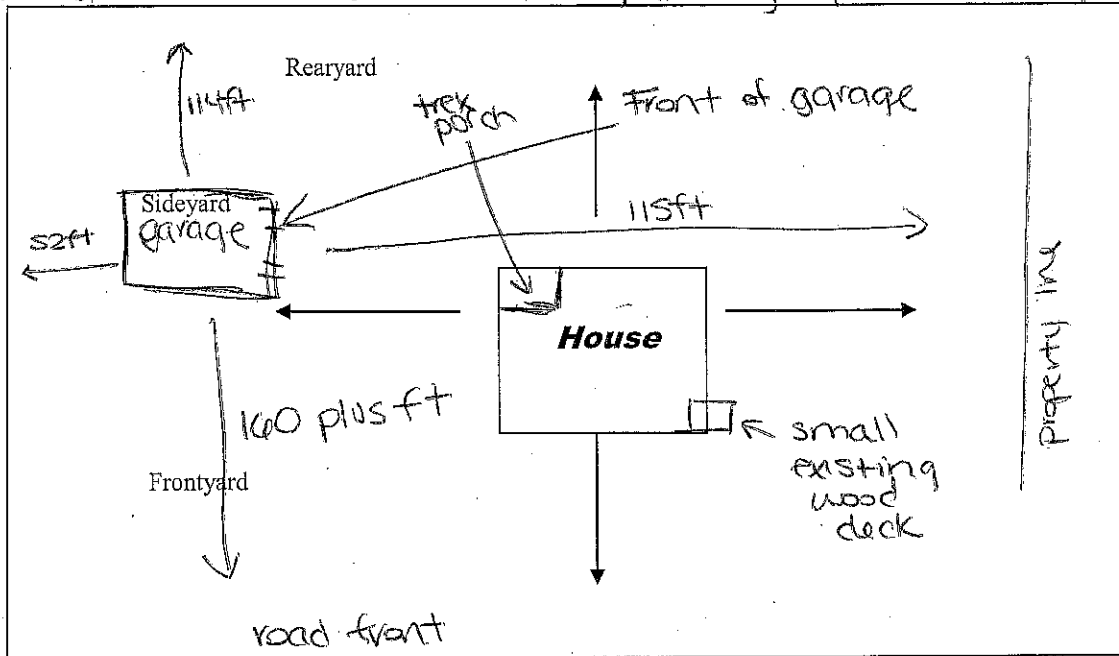 Rearyard
114ft
trex
porch
Front of garage
Sideyard
garage
115ft
52ft
House
property line
160 plus ft
small
existing
wood
deck
Frontyard
road front